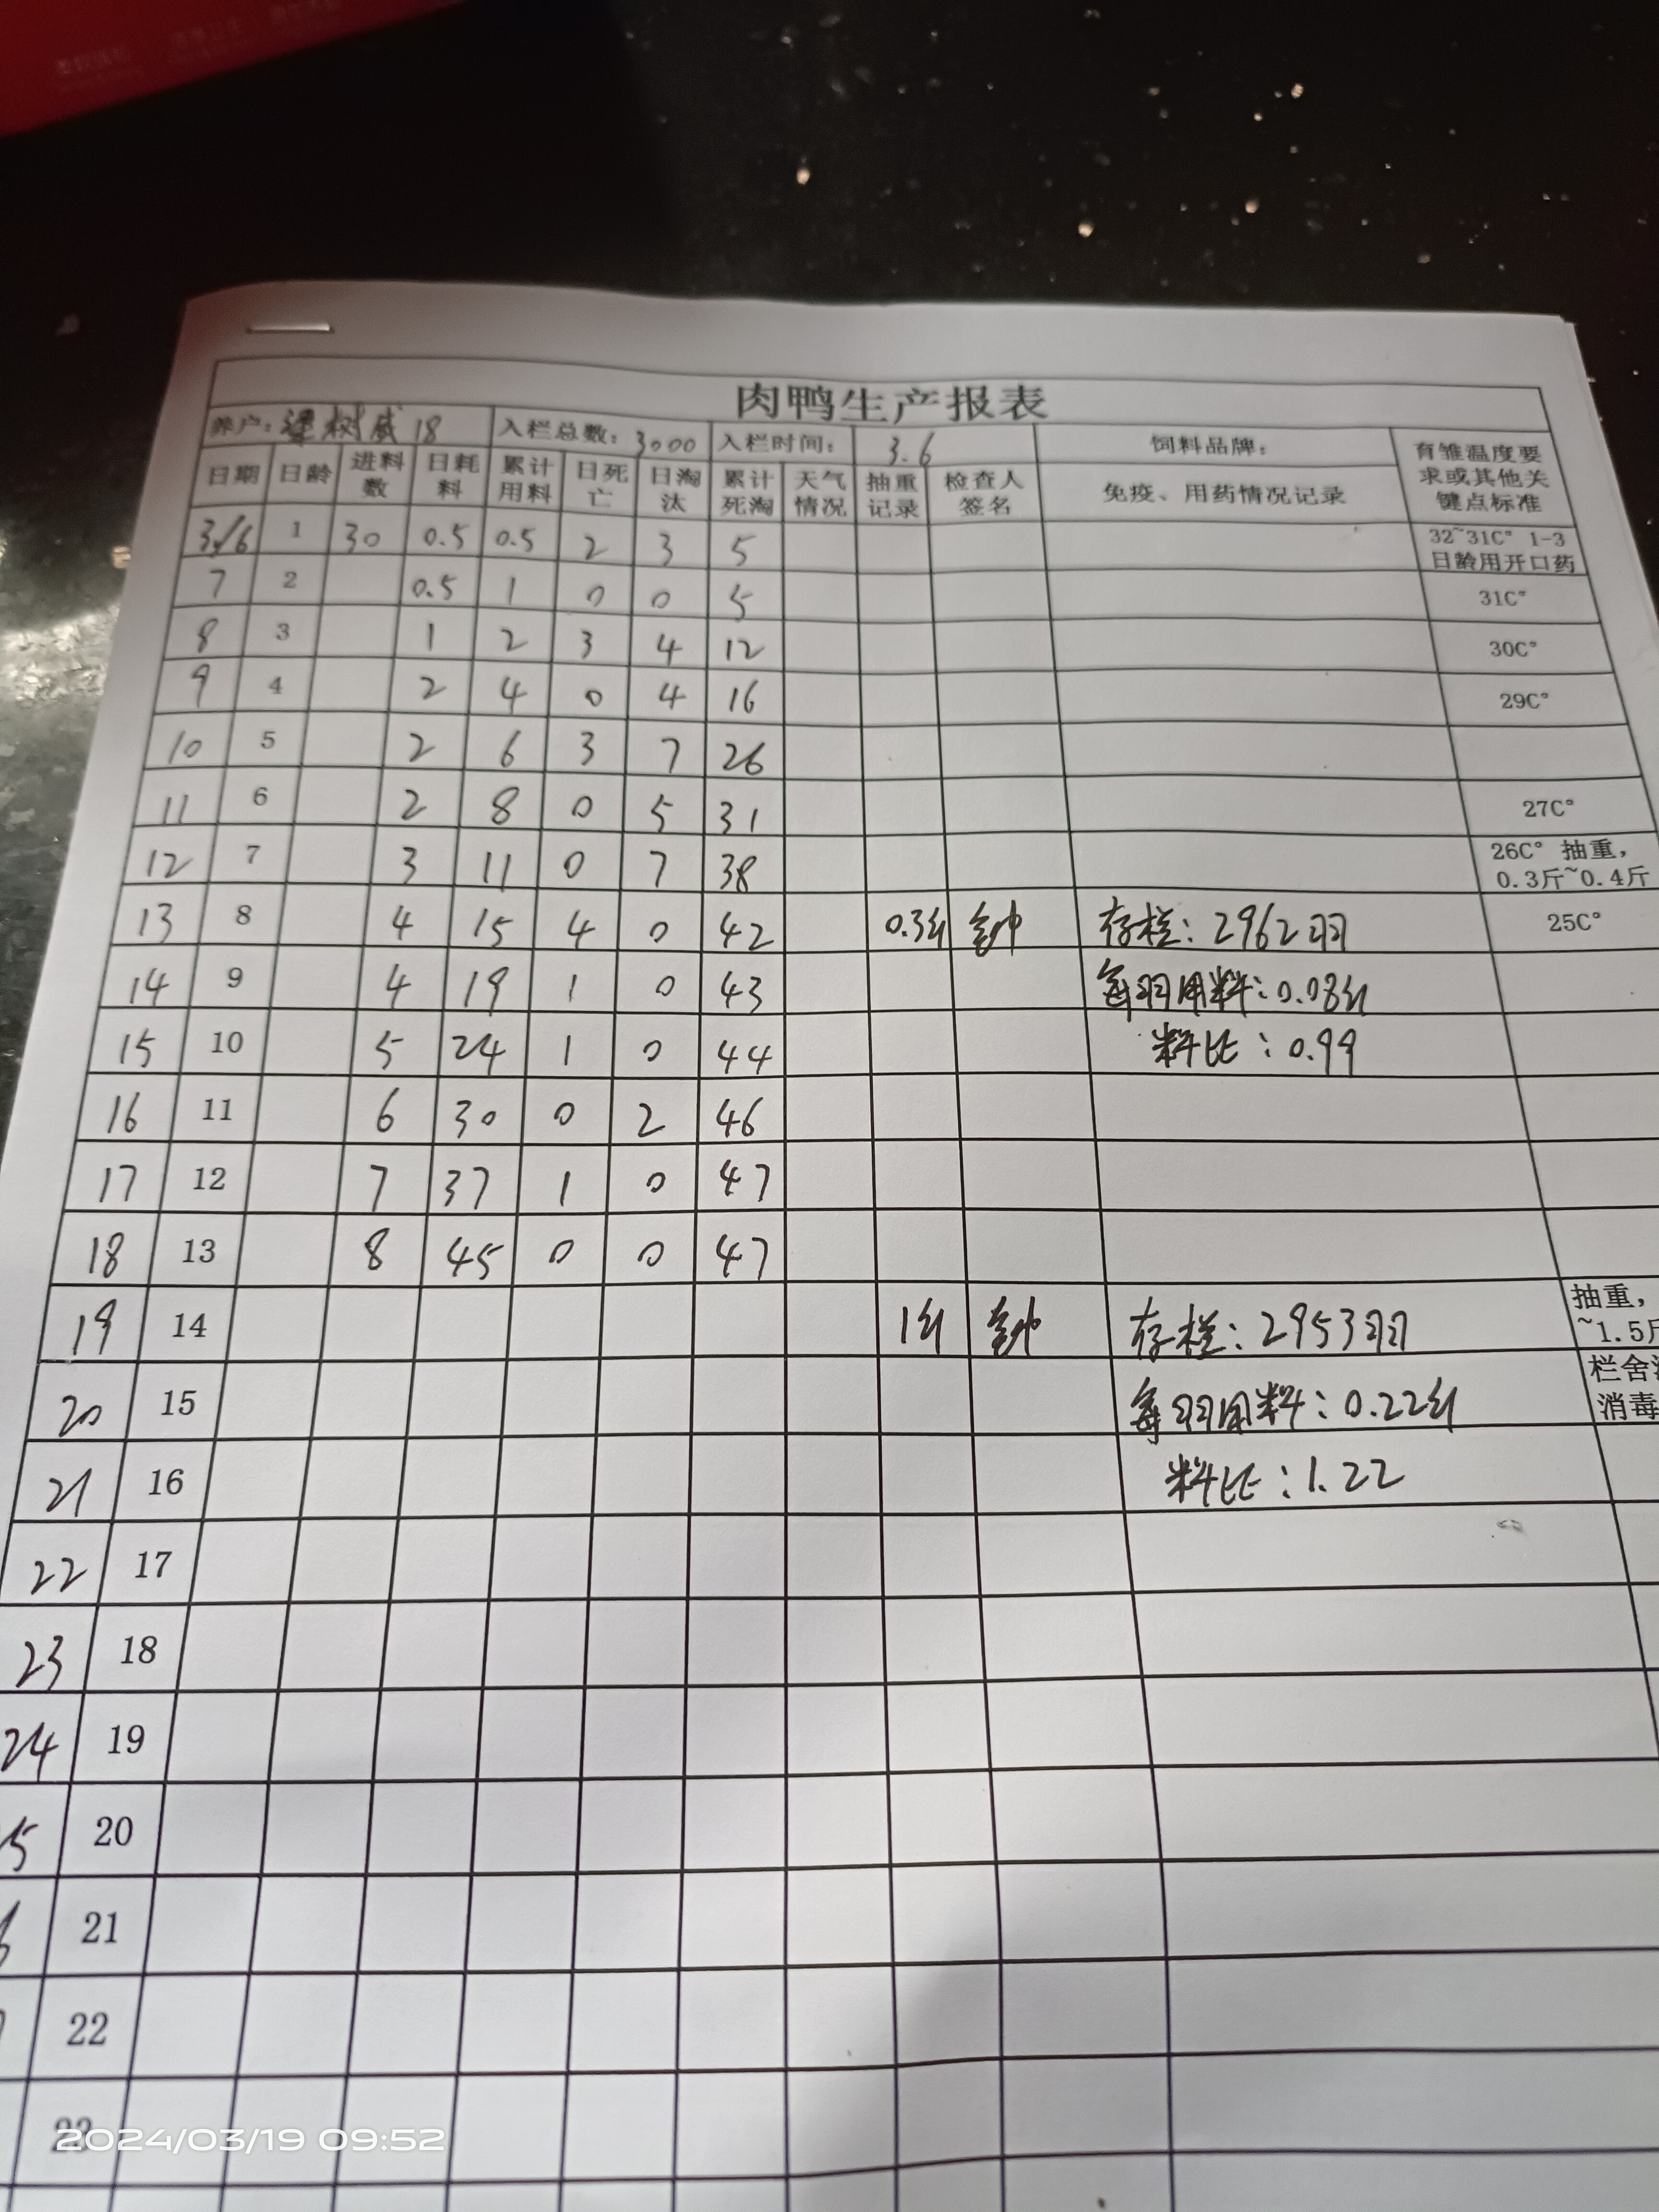 肉鸭生产报表
养户：梁树威 18 入栏总数：3000 入栏时间： 3.6 饲料品牌： 育雏温度要求或其他关键点标准
日期 日龄 进料数 日耗料 累计用料 日死亡 日淘汰 累计死淘 天气情况 抽重记录 检查人签名 免疫、用药情况记录
3/6 1 30 0.5 0.5 2 3 5 32~31C° 1-3日龄用开口药
7 2 0.5 1 0 0 5 31C°
8 3 1 2 3 4 12 30C°
9 4 2 4 0 4 16 29C°
10 5 2 6 3 7 26
11 6 2 8 0 5 31 27C°
12 7 3 11 0 7 38 26C° 抽重，0.3斤~0.4斤
13 8 4 15 4 0 42 0.3斤 存栏：2962羽 25C°
14 9 4 19 1 0 43 每羽用料：0.08斤
15 10 5 24 1 0 44 料比：0.99
16 11 6 30 0 2 46
17 12 7 37 1 0 47
18 13 8 45 0 0 47
19 14 1斤 存栏：2953羽 抽重，~1.5斤
20 15 每羽用料：0.22斤 栏舍 消毒
21 16 料比：1.22
22 17
23 18
24 19
5 20
6 21
22
23
2024/03/19 09:52